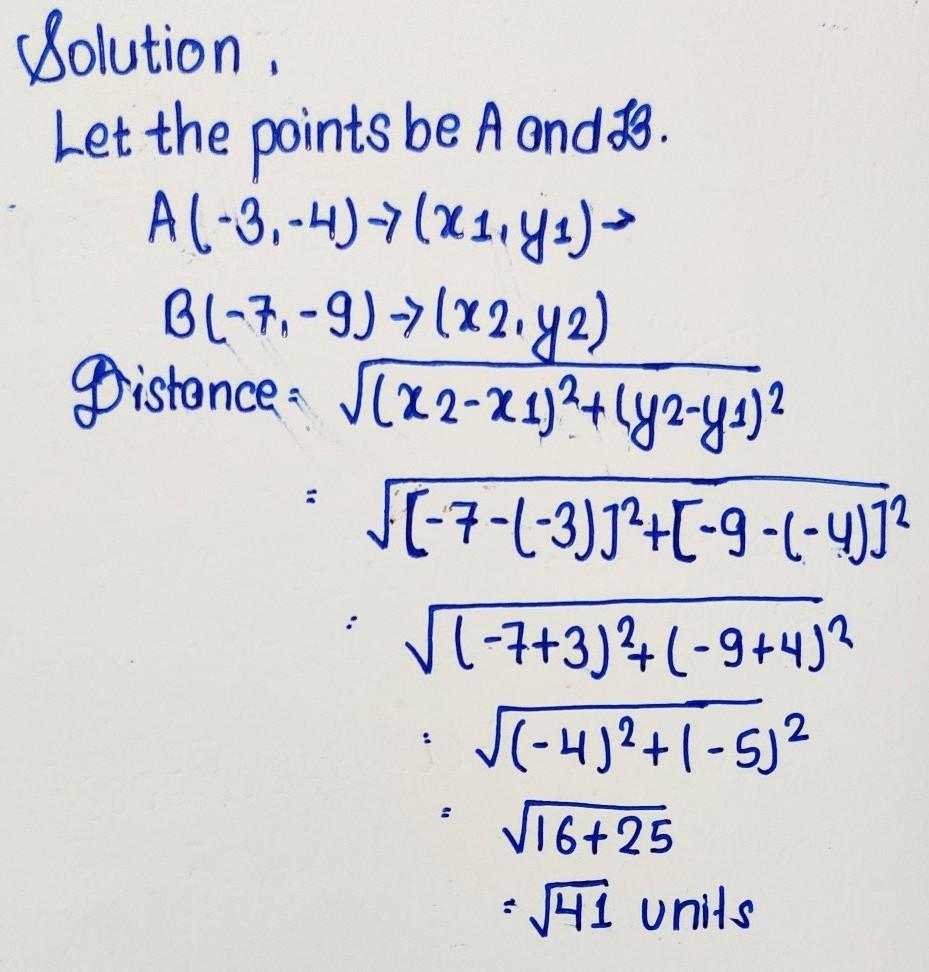 Solution,
Let the points be A and B.
A(-3,-4)→(x1,y1)→
B(-7,-9)→(x2,y2)
Distance = √(x2-x1)²+(y2-y1)²
= √[-7-(-3)]²+[-9-(-4)]²
: √(-7+3)²+(-9+4)²
: √(-4)²+(-5)²
= √16+25
= √41 units